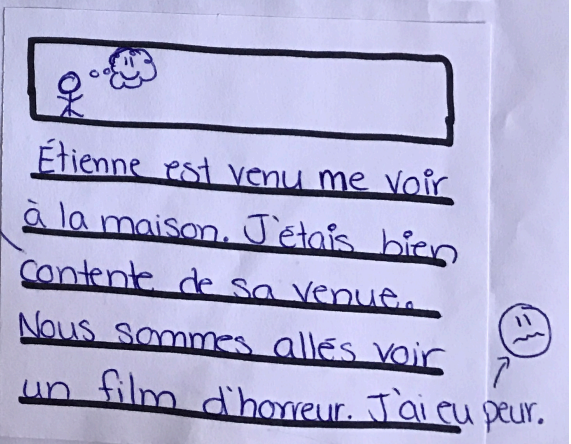 Étienne est venu me voir
à la maison. J'étais bien
contente de sa venue.
Nous sommes allés voir
un film d'horreur. J'ai eu peur.